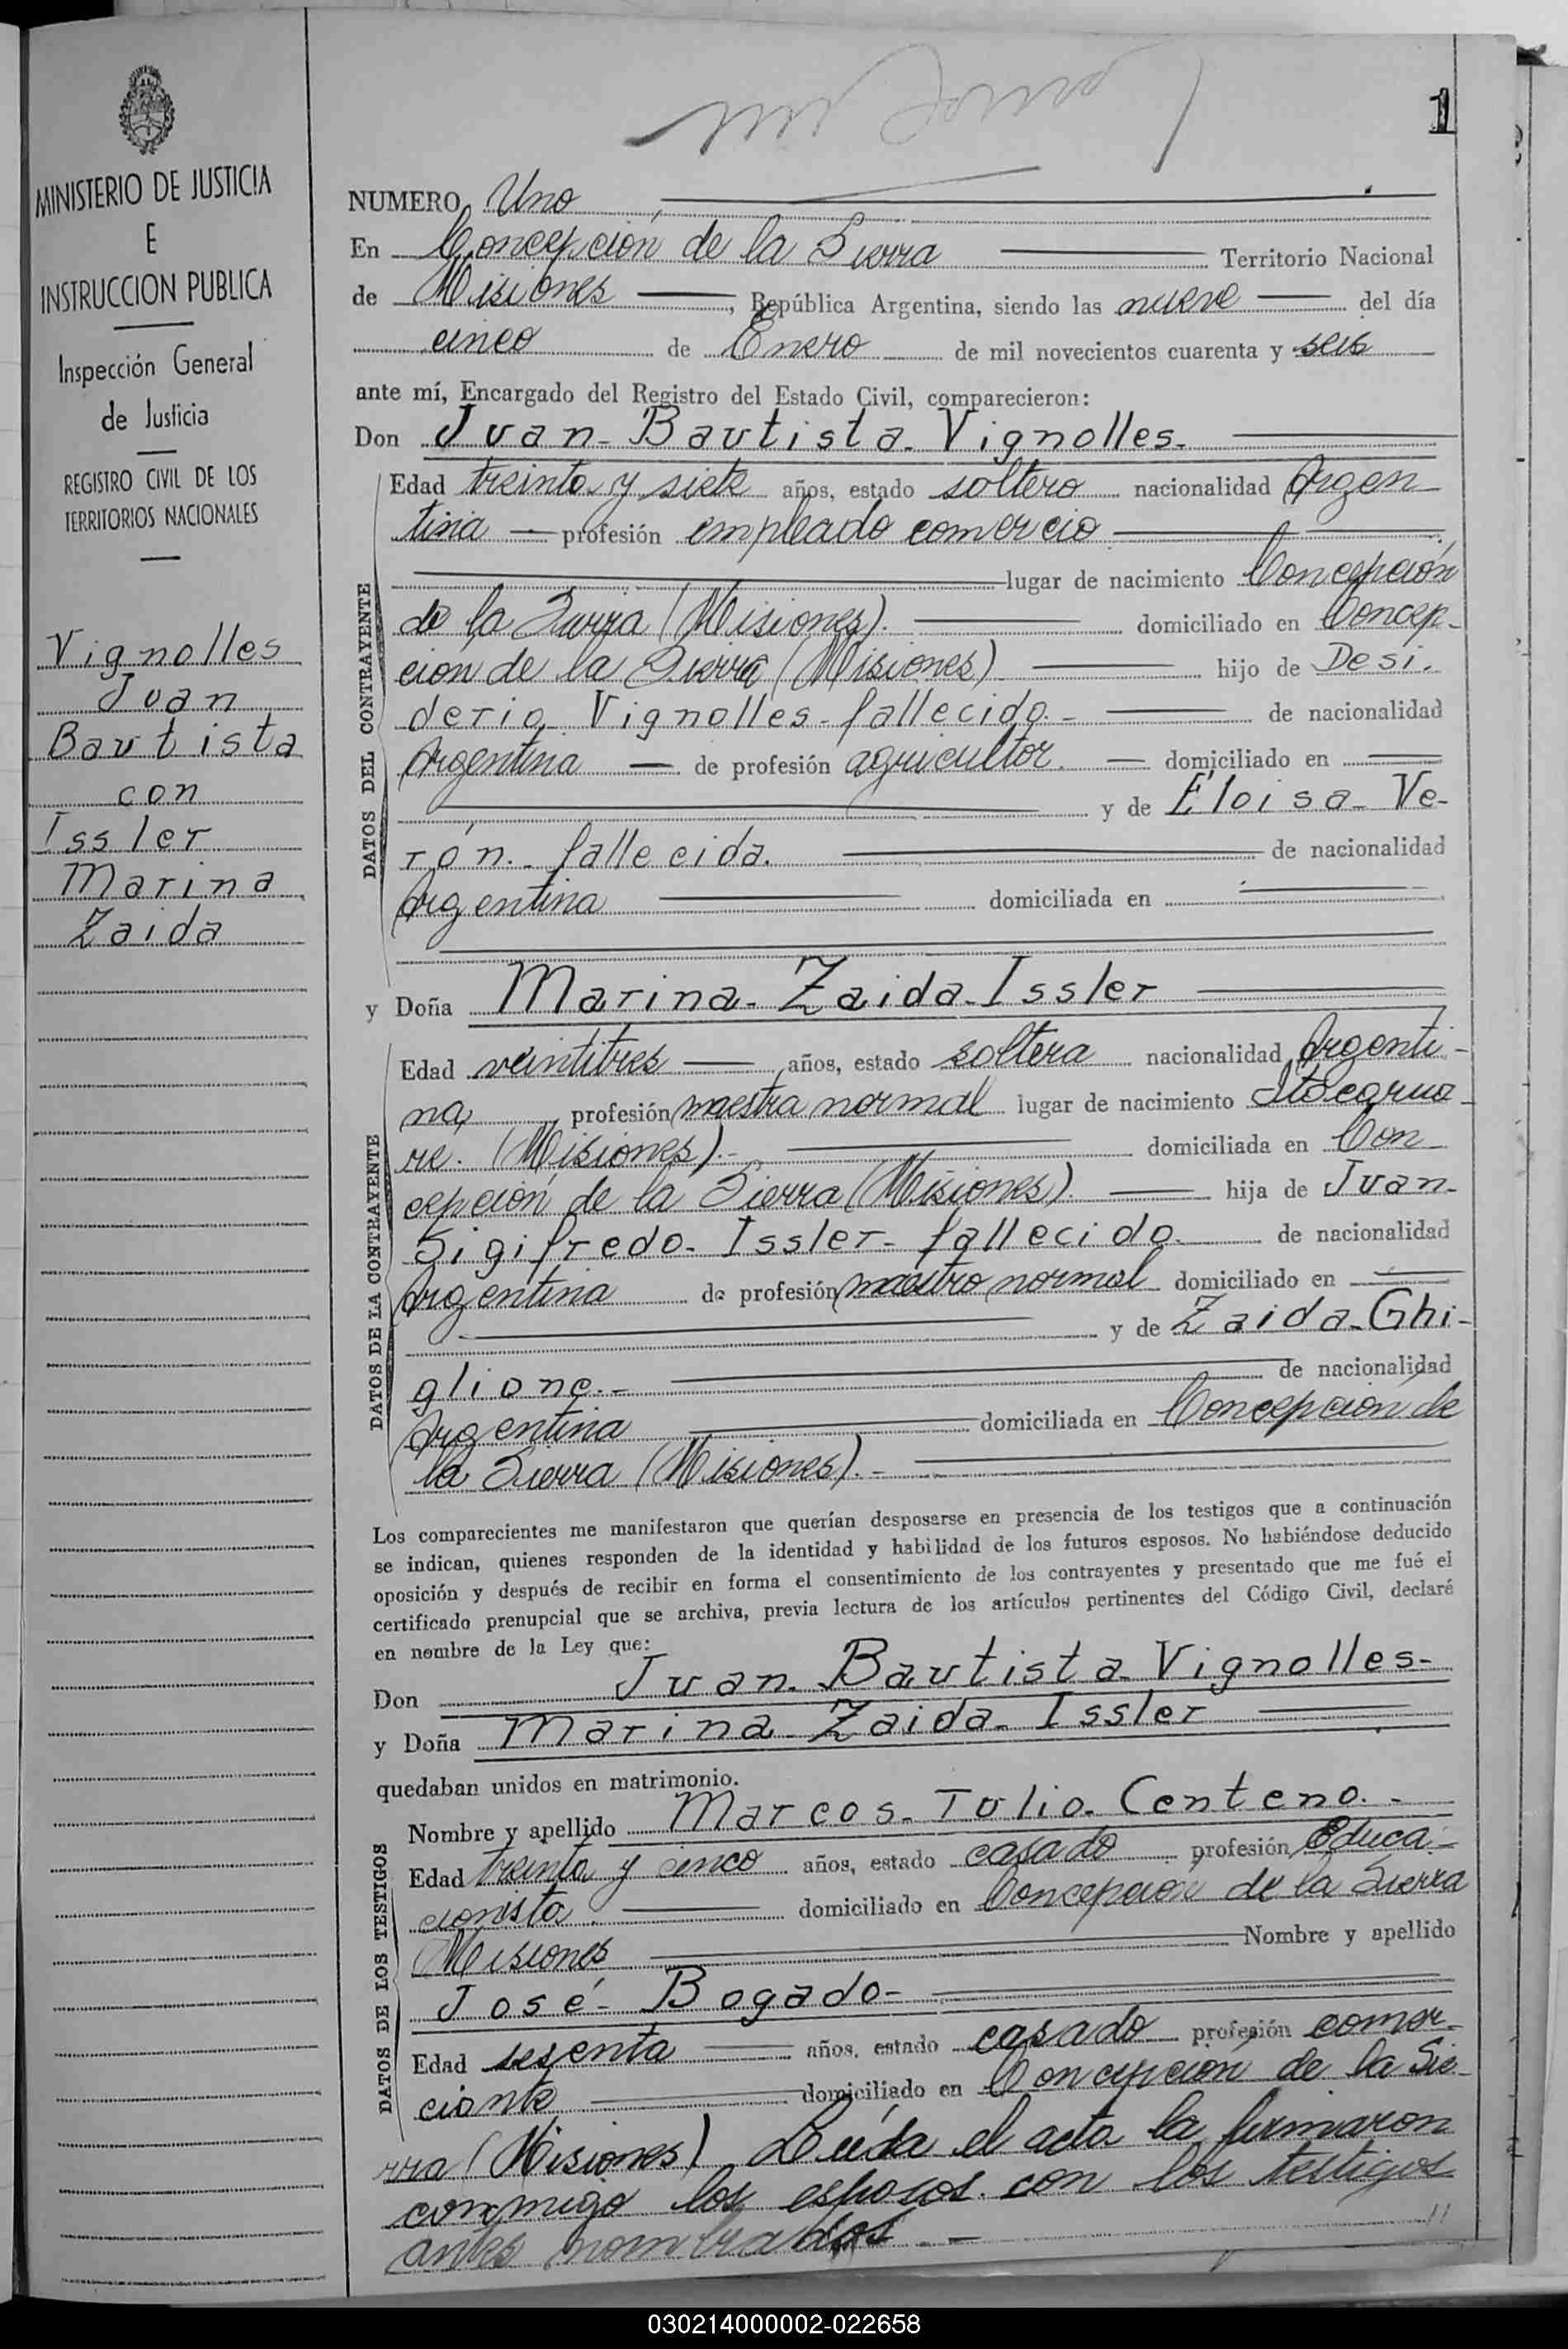 MINISTERIO DE JUSTICIA
E
INSTRUCCION PUBLICA
Inspección General
de Justicia
REGISTRO CIVIL DE LOS
TERRITORIOS NACIONALES
Vignolles
Juan
Bautista
con
Issler
Marina
Zaida
1
NUMERO Uno
En Concepción de la Sierra Territorio Nacional
de Misiones, República Argentina, siendo las nueve del día
cinco de Enero de mil novecientos cuarenta y seis
ante mí, Encargado del Registro del Estado Civil, comparecieron:
Don Juan Bautista Vignolles.
DATOS DEL CONTRAYENTE
Edad treinta y siete años, estado soltero nacionalidad Argen-
tina profesión empleado comercio
lugar de nacimiento Concepción
de la Sierra (Misiones). domiciliado en Concep-
ción de la Sierra (Misiones) hijo de Desi-
derio Vignolles - fallecido. - de nacionalidad
Argentina de profesión agricultor. domiciliado en
y de Eloisa Ve-
rón. - fallecida. de nacionalidad
Argentina domiciliada en
y Doña Marina Zaida Issler
DATOS DE LA CONTRAYENTE
Edad veintitres años, estado soltera nacionalidad Argenti-
na, profesión maestra normal lugar de nacimiento Itacarua-
re. (Misiones). - domiciliada en Con
cepción de la Sierra (Misiones). hija de Juan
Sigifredo Issler - fallecido. de nacionalidad
Argentina de profesión maestro normal domiciliado en
y de Zaida Ghi-
glione. - de nacionalidad
Argentina domiciliada en Concepción de
la Sierra (Misiones). -
Los comparecientes me manifestaron que querían desposarse en presencia de los testigos que a continuación
se indican, quienes responden de la identidad y habilidad de los futuros esposos. No habiéndose deducido
oposición y después de recibir en forma el consentimiento de los contrayentes y presentado que me fué el
certificado prenupcial que se archiva, previa lectura de los artículos pertinentes del Código Civil, declaré
en nombre de la Ley que:
Don Juan Bautista Vignolles
y Doña Marina Zaida Issler
quedaban unidos en matrimonio.
DATOS DE LOS TESTIGOS
Nombre y apellido Marcos Tulio Centeno. -
Edad treinta y cinco años, estado casado profesión Educa-
cionista. domiciliado en Concepción de la Sierra
Misiones Nombre y apellido
José Bogado
Edad sesenta años, estado casado profesión comer-
ciante domiciliado en Concepción de la Sie-
rra (Misiones) Leída el acta la firmaron
conmigo los esposos con los testigos
antes nombrados. -
030214000002-022658